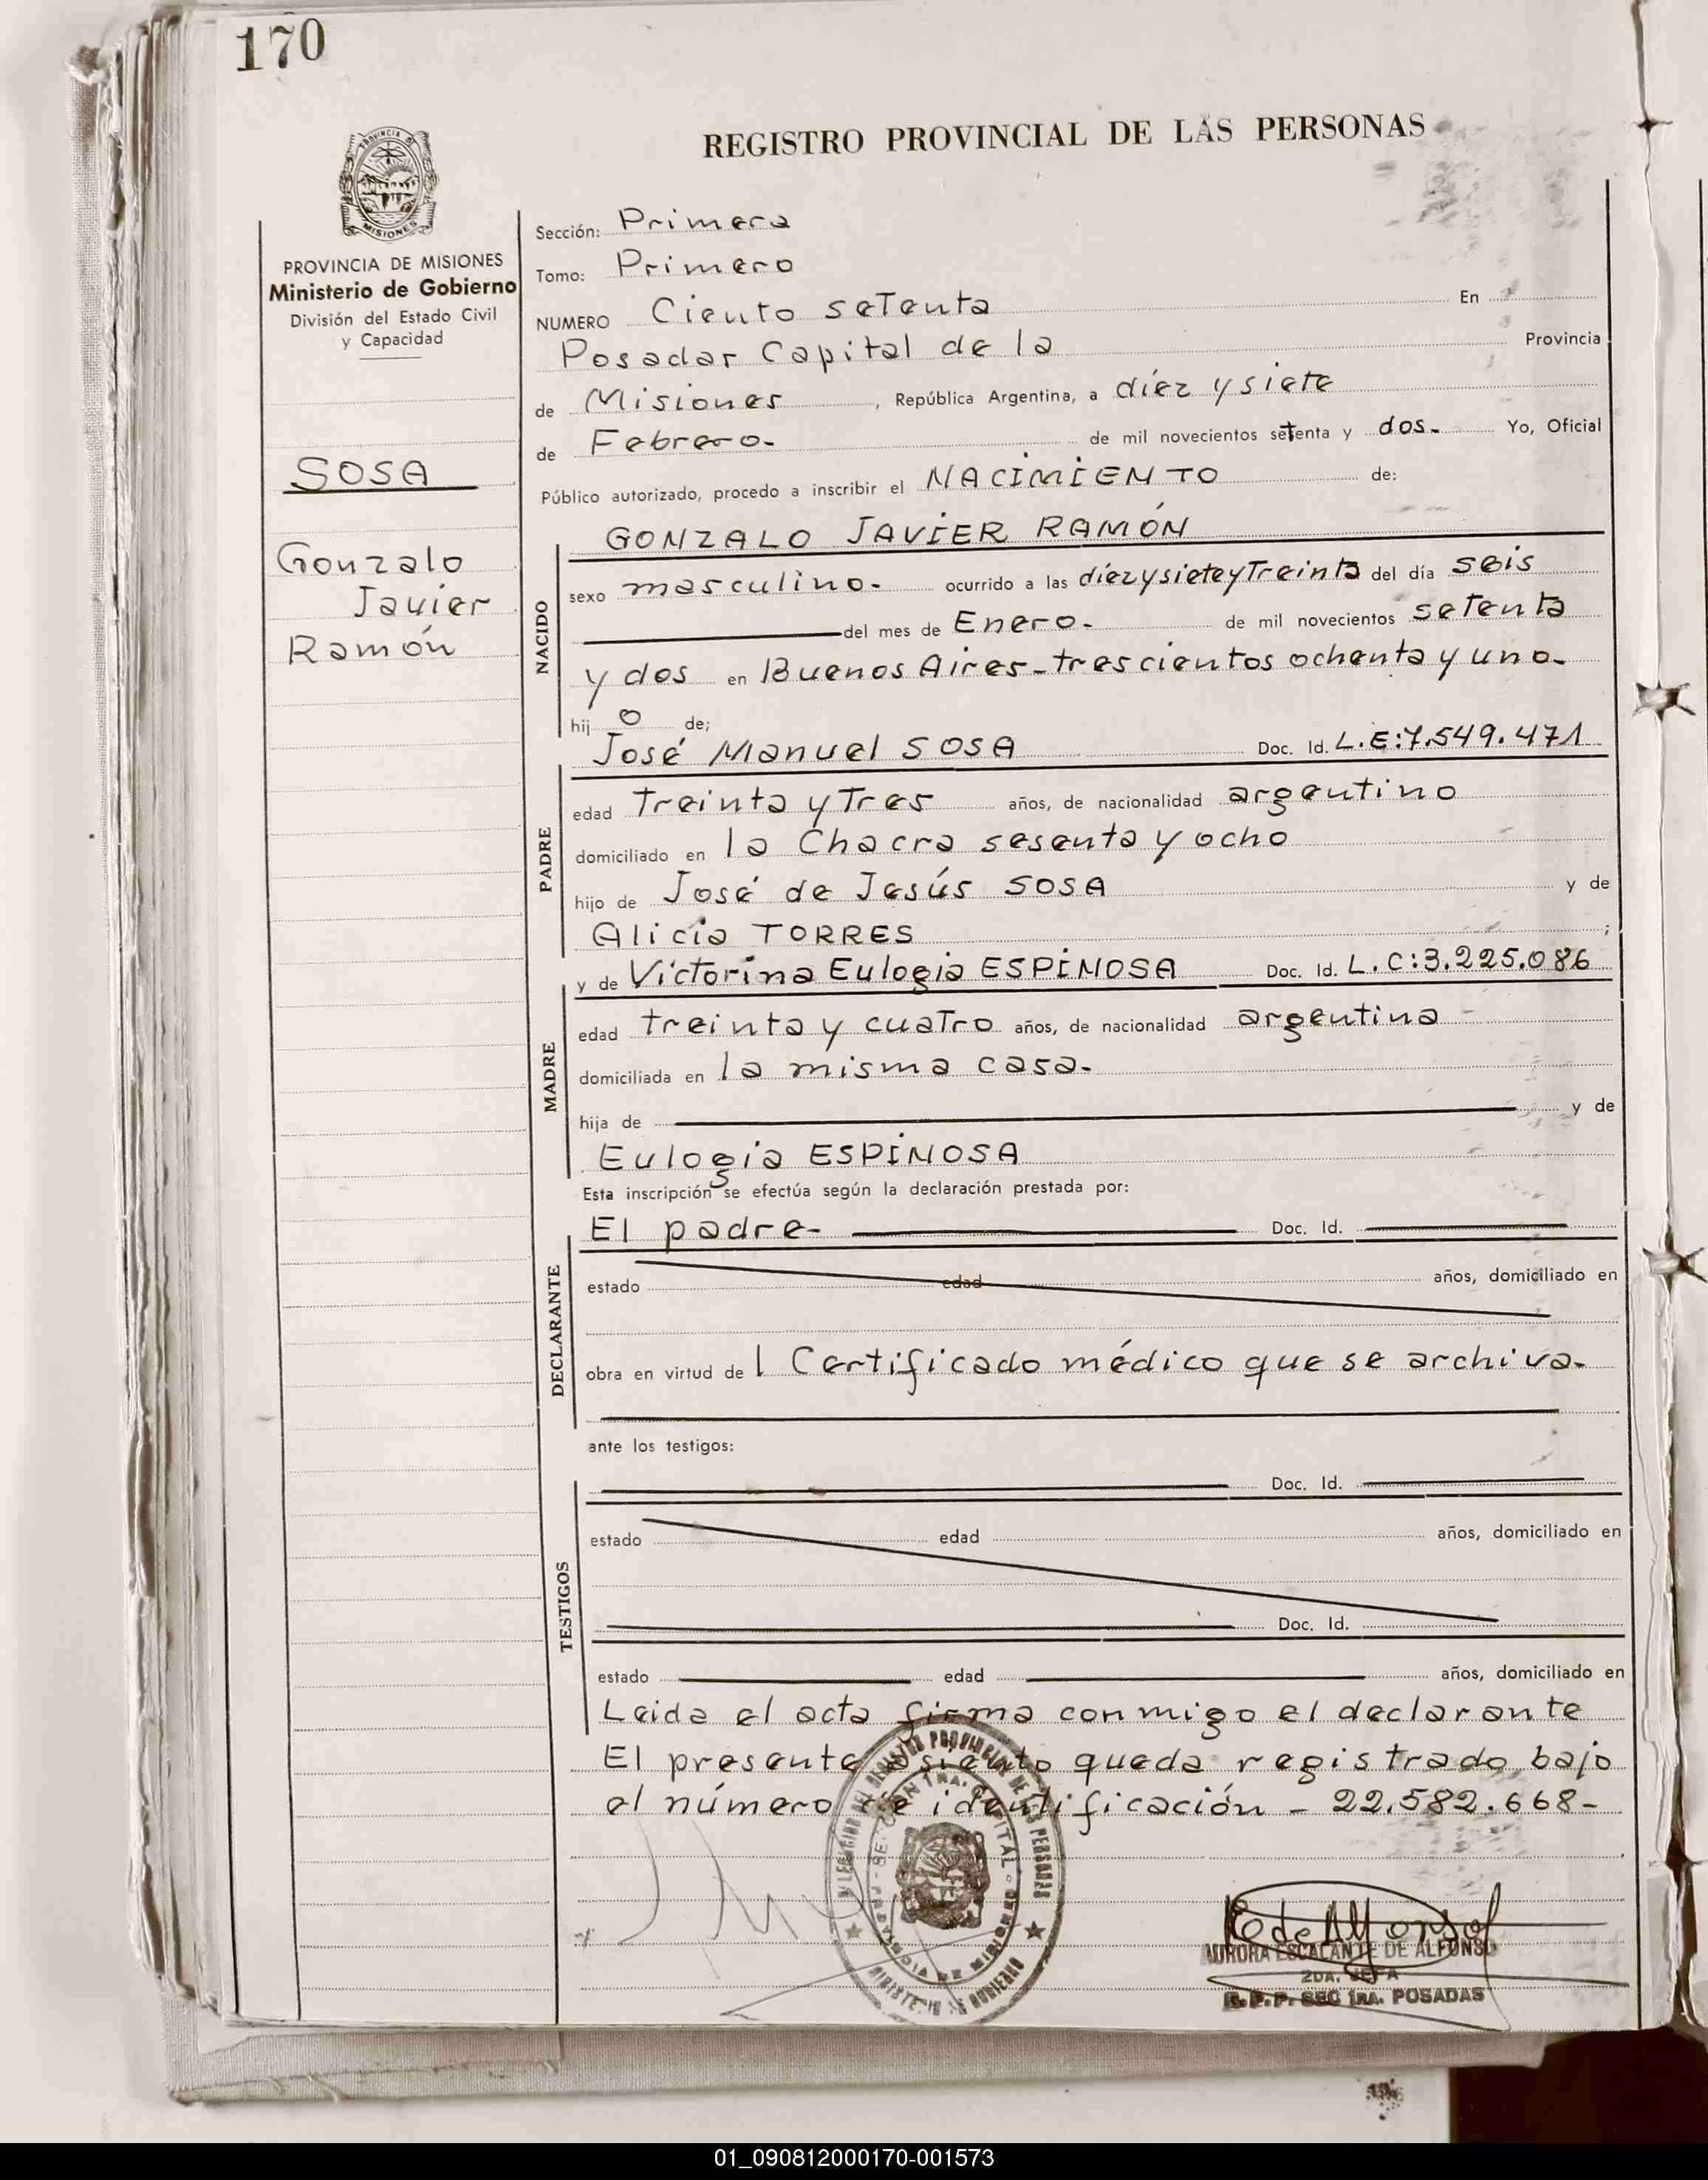 170
REGISTRO PROVINCIAL DE LAS PERSONAS
PROVINCIA
MISIONES
PROVINCIA DE MISIONES
Ministerio de Gobierno
División del Estado Civil
y Capacidad
SOSA
Gonzalo
Javier
Ramón
Sección: Primera
Tomo: Primero
NUMERO Ciento setenta En
Posadas Capital de la Provincia
de Misiones, República Argentina, a diez y siete
de Febrero. de mil novecientos setenta y dos. Yo, Oficial
Público autorizado, procedo a inscribir el NACIMIENTO de:
GONZALO JAVIER RAMÓN
NACIDO
sexo masculino. ocurrido a las diezysieteytreinta del día seis
del mes de Enero. de mil novecientos setenta
y dos en Buenos Aires-trescientos ochenta y uno.
hij o de;
José Manuel SOSA Doc. Id. L.E:7.549.471
PADRE
edad treinta y tres años, de nacionalidad argentino
domiciliado en la Chacra sesenta y ocho
hijo de José de Jesús SOSA y de
Alicia TORRES ;
y de Victorina Eulogia ESPINOSA Doc. Id. L.C:3.225.086
MADRE
edad treinta y cuatro años, de nacionalidad argentina
domiciliada en la misma casa.
hija de y de
Eulogia ESPINOSA
Esta inscripción se efectúa según la declaración prestada por:
El padre- Doc. Id.
DECLARANTE
estado edad años, domiciliado en
obra en virtud de l Certificado médico que se archiva.
ante los testigos:
Doc. Id.
TESTIGOS
estado edad años, domiciliado en
Doc. Id.
estado edad años, domiciliado en
Leida el acta firma conmigo el declarante
El presente asiento queda registrado bajo
el número de identificación - 22.582.668-
AURORA ESCALANTE DE ALFONSO
2DA. JEFA
R.P.P. SEC 1RA. POSADAS
01_090812000170-001573